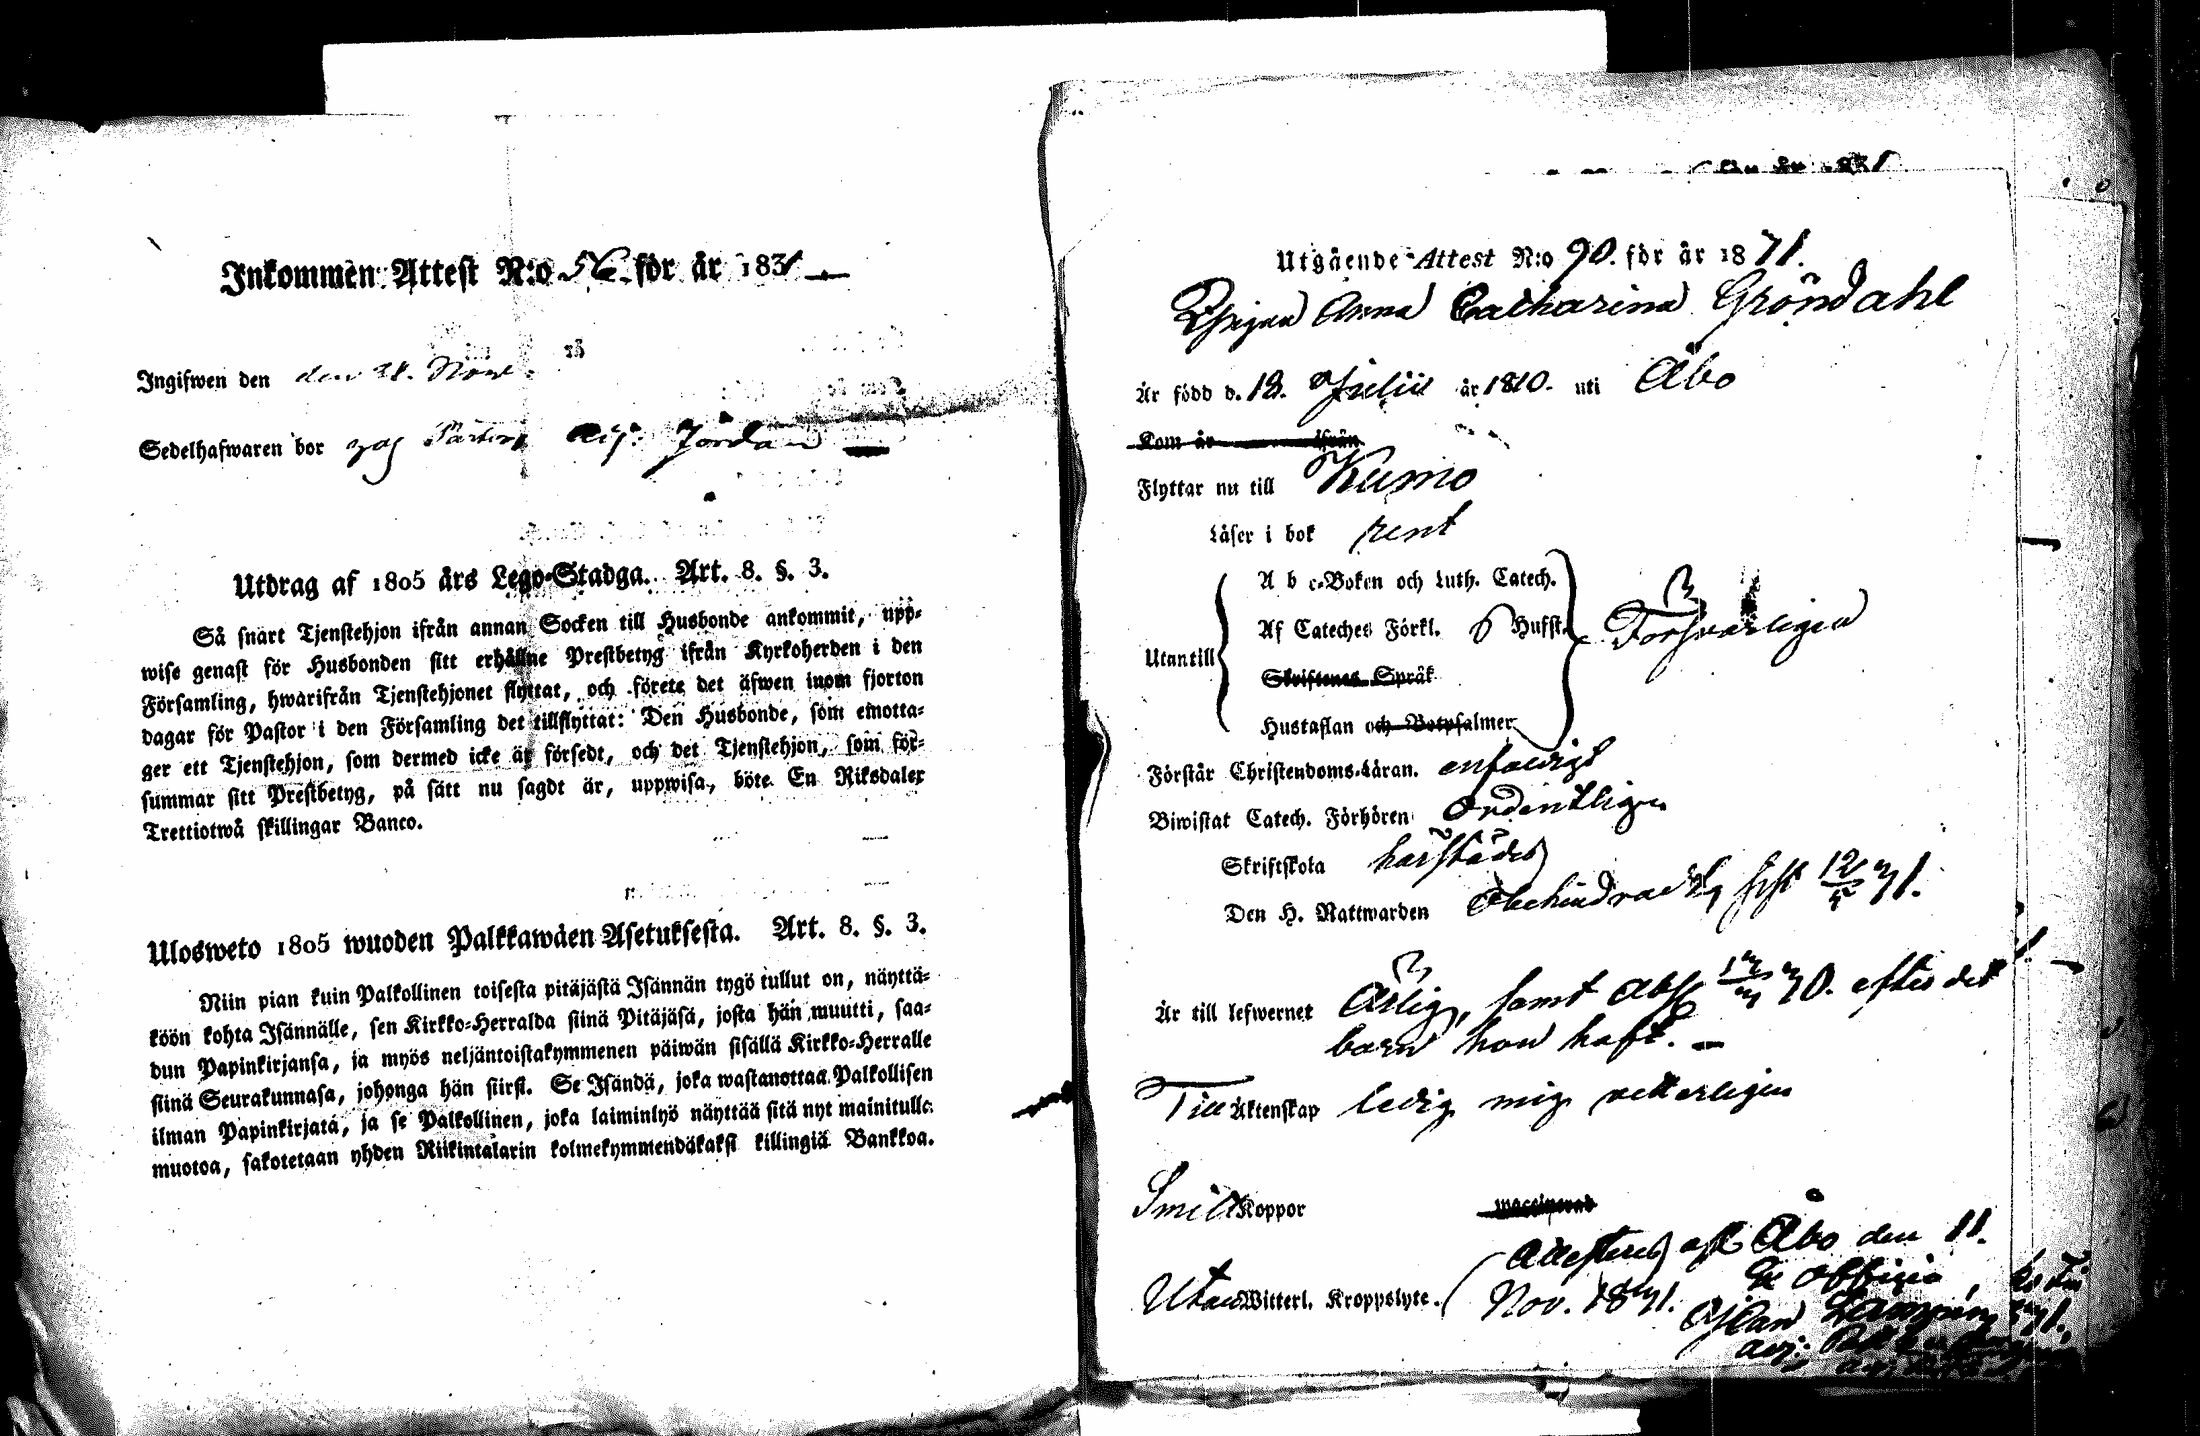 Inkommen Attest N:o 56 för år 1831
Ingifwen den den 28. Nov.
Sedelhafwaren bor
Utdrag af 1805 års Lego-Stadga. Art. 8. §. 3.
Så snart Tjenstehjon ifrån annan Socken till Husbonde ankommit, upp-
wise genast för Husbonden sitt erhållne Prestbetyg ifrån Kyrkoherden i den
Församling, hwarifrån Tjenstehjonet flyttat, och förete det äfwen inom fjorton
dagar för Pastor i den Församling det tillflyttat: Den Husbonde, som emotta-
ger ett Tjenstehjon, som dermed icke är försedt, och det Tjenstehjon, som för-
summar sitt Prestbetyg, på sätt nu sagdt är, uppwisa, böte En Riksdaler
Trettiotwå skillingar Banco.
Ulosweto 1805 wuoden Palkkawäen Asetuksesta. Art. 8. §. 3.
Niin pian kuin Palkollinen toisesta pitäjästä Isännän tygö tullut on, näyttä-
köön kohta Isännälle, sen Kirkko-Herralda siinä Pitäjäsä, josta hän muutti, saa-
dun Papinkirjansa, ja myös neljäntoistakymmenen päiwän sisällä Kirkko-Herralle
siinä Seurakunnasa, johonga hän siirsi. Se Isändä, joka wastanottaa Palkollisen
ilman Papinkirjatá, ja se Palkollinen, joka laiminlyö näyttää sitä nyt mainitulla
muotoa, sakotetaan yhden Riikintalarin kolmekymmendäkaksi killingiä Bankkoa.
Utgående Attest N:o 90. för år 1871.
Pigan Anna Catharina Gröndahl
Är född d. 18. Julii år 1810. uti Åbo
Kom år ifrån
Flyttar nu till Kumo
Läser i bok rent
A b c-Boken och Luth. Catech.
Af Cateches Förkl. o Husft.
Utantill
Försvarligen
Skriftenes Språk
Hustaflan och Botpsalmer
Förstår Christendoms-Läran. enfaldigt
Biwistat Catech. Förhören ordentligen
Skriftskola härstädes
Den H. Nattwarden obehindrad
Är till lefwernet Ärlig, samt 70. efter det
barn hon haft.
Till Äktenskap ledig mig vetterligen
Smitt Koppor waccinerad
Utan Witterl. Kroppslyte.
Attesteras Åbo den 11.
Nov. 1871. Ex officio